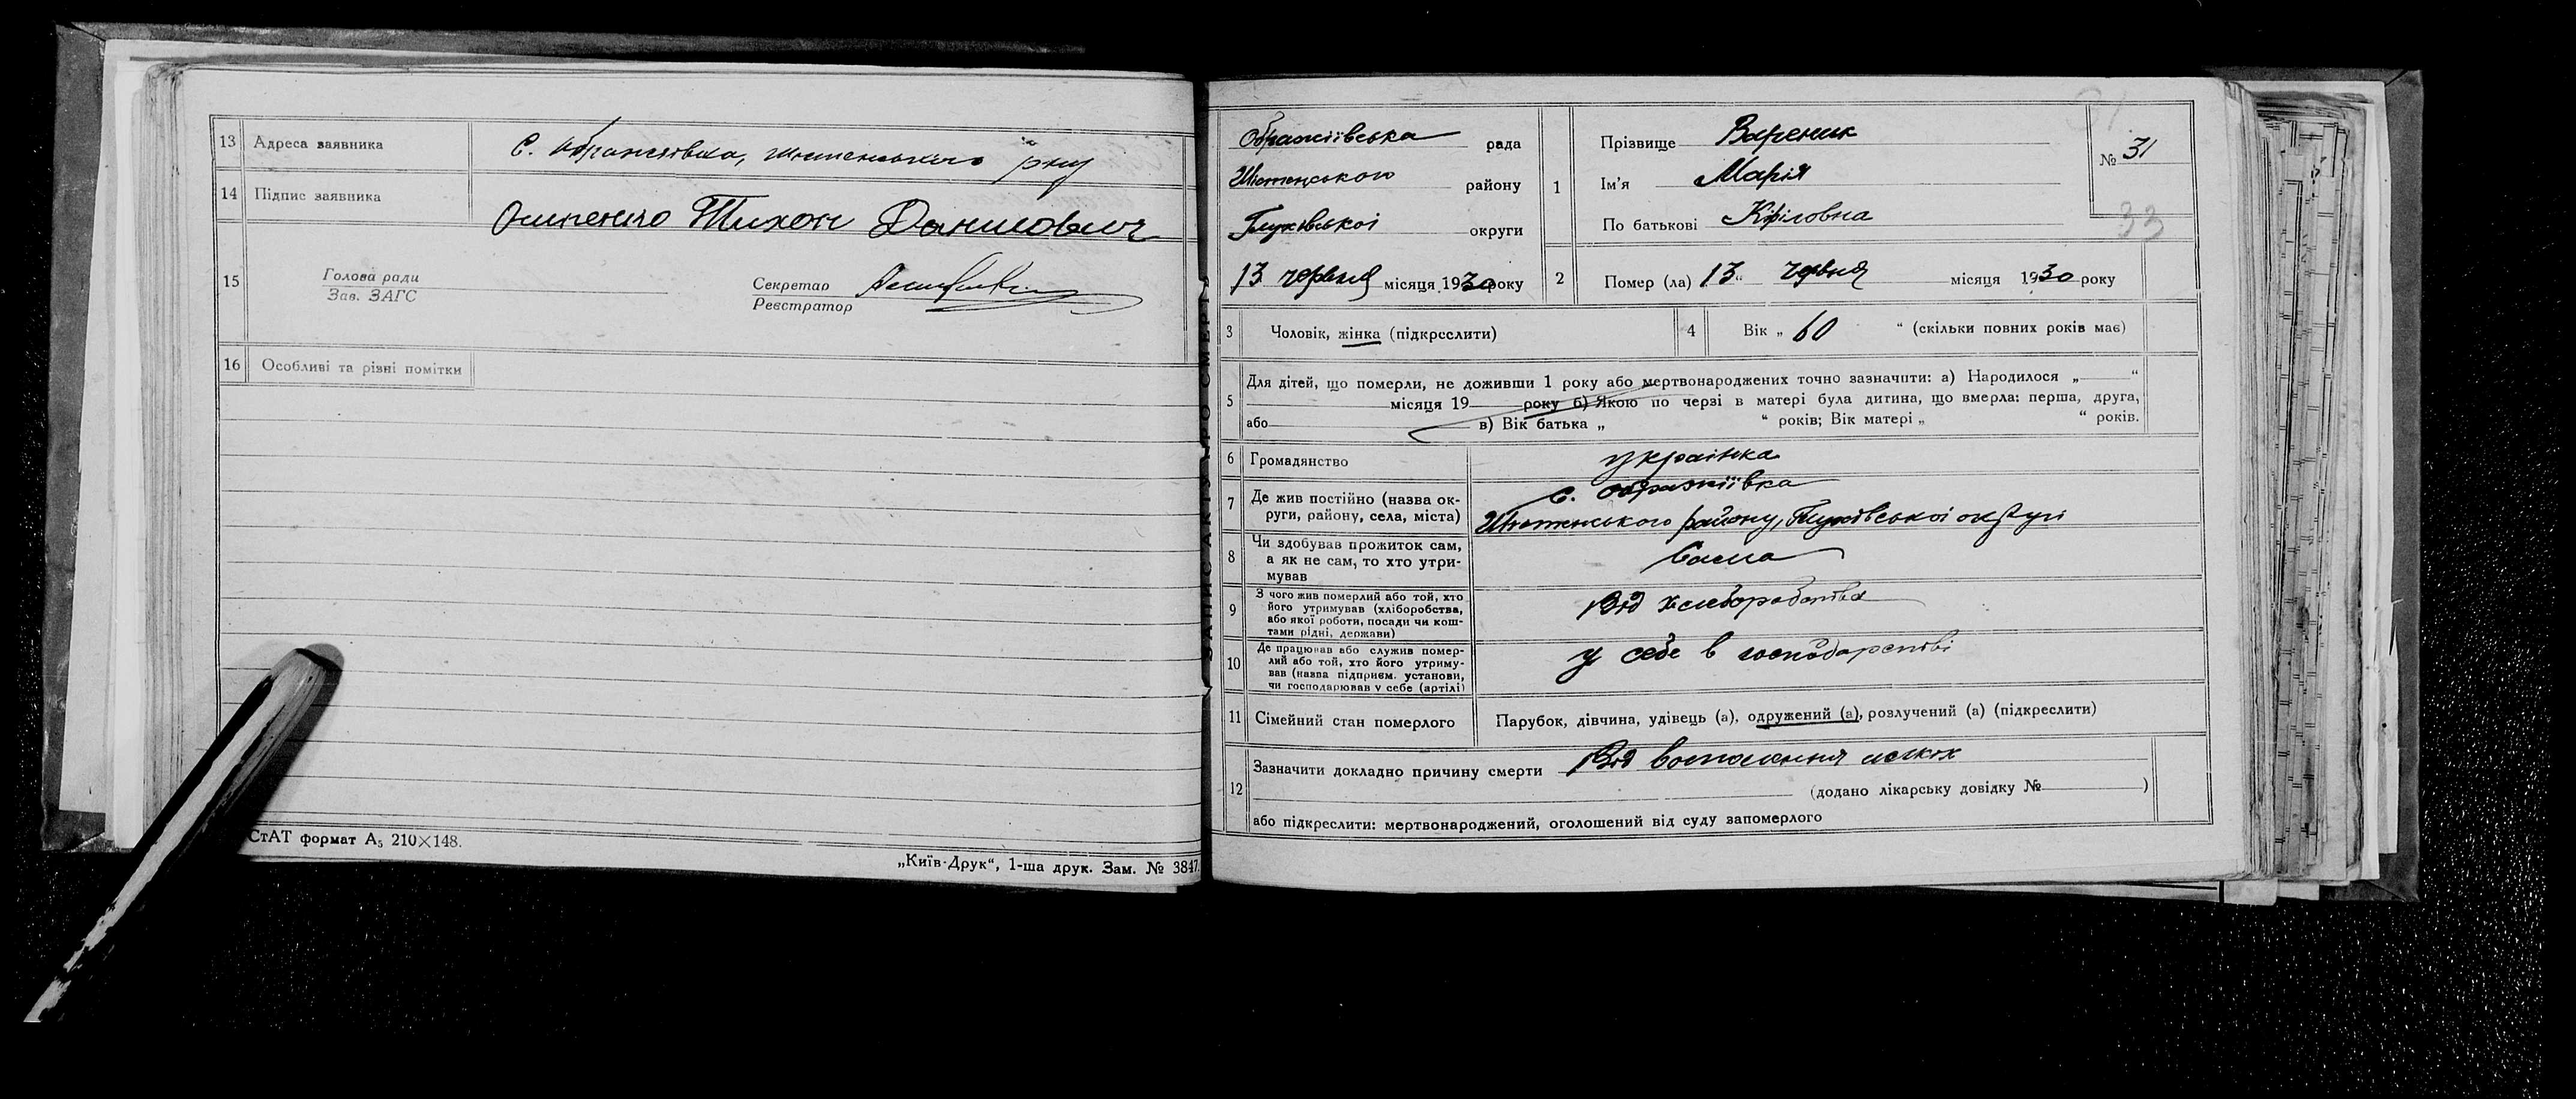 13 Адреса заявника с. Ображіївка, Шостенського р-ну
14 Підпис заявника
Осипенко Тихон Данилович
15 Голова ради
Зав. ЗАГС
Секретар
Реєстратор
16 Особливі та різні помітки
СтАТ формат А₅ 210×148.
„Київ-Друк“, 1-ша друк. Зам. № 3847.
ЗАПИС АКТУ ПРО СМЕРТЬ
Ображіївська рада
Шостенського району
Глухівської округи
13 червня місяця 1930 року
1 Прізвище Вареник
Ім’я Марія
По батькові Кіріловна
№ 31
33
2 Помер (ла) 13 “ червня місяця 1930 року
3 Чоловік, жінка (підкреслити)
4 Вік „ 60 “ (скільки повних років має)
5 Для дітей, що померли, не доживши 1 року або мертвонароджених точно зазначити: а) Народилося „ “
місяця 19 року б) Якою по черзі в матері була дитина, що вмерла: перша, друга,
або в) Вік батька „ “ років; Вік матері „ “ років.
6 Громадянство українка
7 Де жив постійно (назва ок-
руги, району, села, міста)
с. Ображіївка
Шостенського району, Глухівської округи
8 Чи здобував прожиток сам,
а як не сам, то хто утри-
мував
Сама
9 З чого жив померлий або той, хто
його утримував (хліборобства,
або якої роботи, посади чи кош-
тами рідні, держави)
Від хліборобства
10 Де працював або служив помер-
лий або той, хто його утриму-
вав (назва підприєм. установи,
чи господарював у себе (артілі)
у себе в господарстві
11 Сімейний стан померлого Парубок, дівчина, удівець (а), одружений (а), розлучений (а) (підкреслити)
12 Зазначити докладно причину смерти Від воспалення легких
(додано лікарську довідку № )
або підкреслити: мертвонароджений, оголошений від суду запомерлого